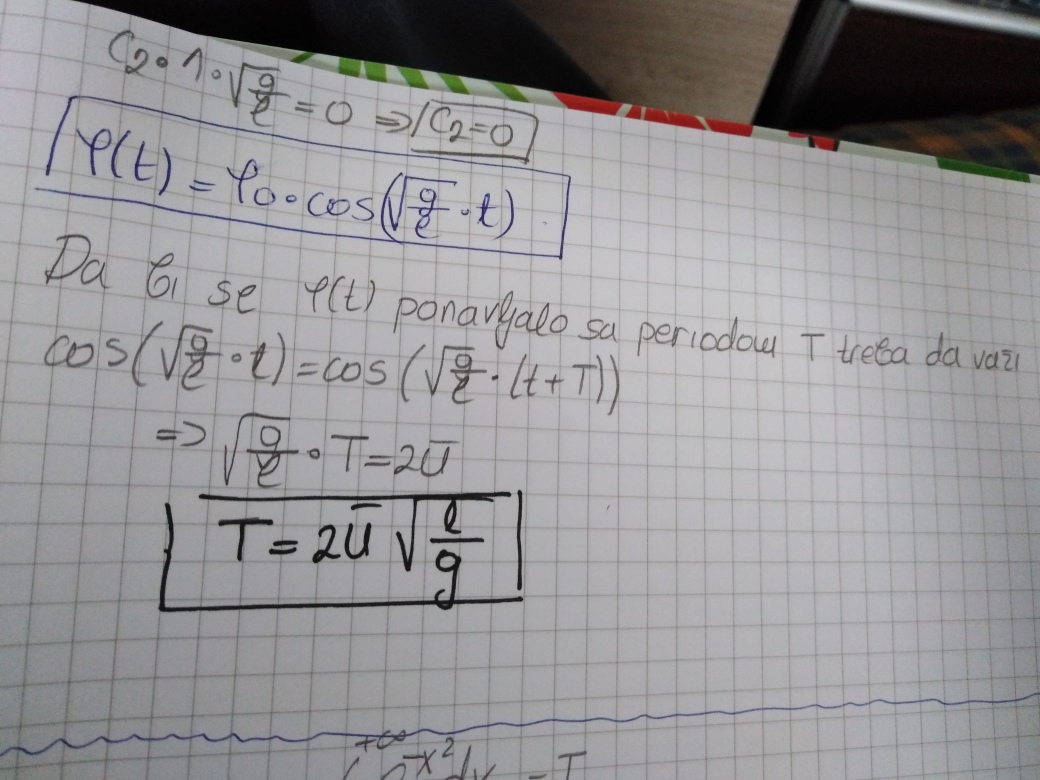 C₂ · 1 · √(g/ℓ) = 0 ⇒ C₂ = 0
φ(t) = φ₀ · cos(√(g/ℓ) · t)
Da bi se φ(t) ponavljalo sa periodom T treba da važi
cos(√(g/ℓ) · t) = cos(√(g/ℓ) · (t + T))
⇒ √(g/ℓ) · T = 2π
T = 2π √(ℓ/g)